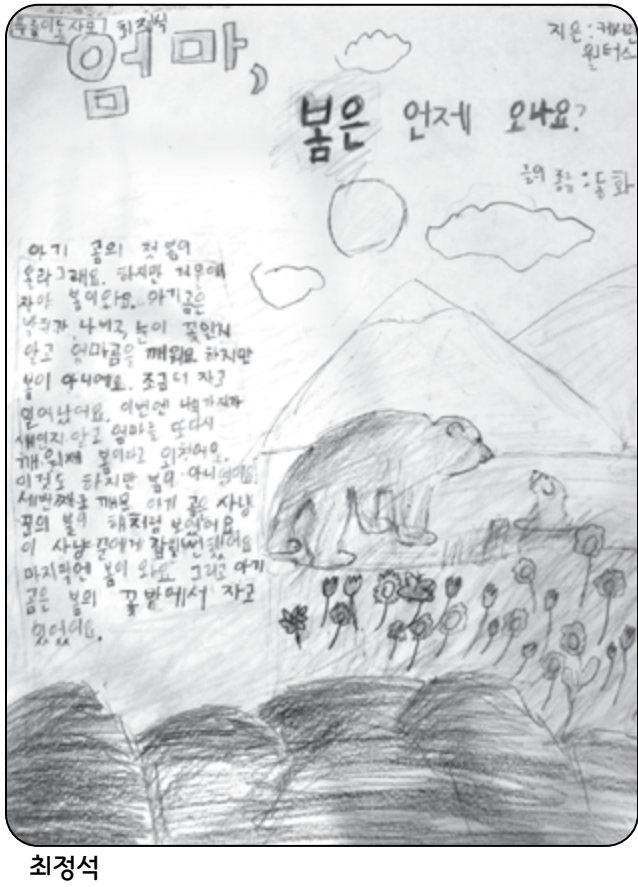 최정석
엄마,
지은이: 캐서린
월터스
봄은 언제 오나요?
글의 종류: 동화
아기 곰의 첫 봄이
올라 그래요. 하지만 겨울에
자야 봄이 와요. 아기 곰은
나비고, 눈이 꽃인지
알고 엄마곰을 깨워요 하지만
봄이 아니에요. 조금 더 자고
일어났어요. 이번엔 나뭇가지가
새인지 알고 엄마를 또다시
깨워 이제 봄이다고 외쳤어요.
이것도 하지만 봄이 아니었어요
세번째로 깨운 아기 곰은 사냥
꾼의 불이 해처럼 보였어요.
이 사냥꾼에게 잡힐뻔 했어요
마지막엔 봄이 와요 그리고 아기
곰은 봄의 꽃밭에서 자고
있었어요.
최정석